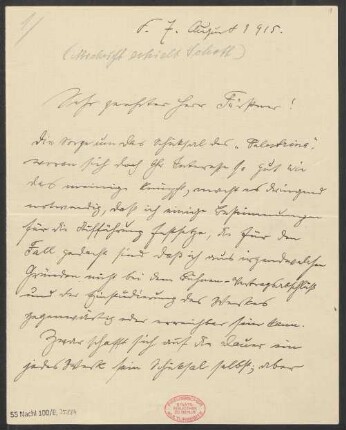 1)
d. 7. August 1915.
(Abschrift erhielt Schott)
Sehr geehrter Herr Fürstner!
Die Sorge um das Schicksal des „Palestrina",
woran sich doch Ihr Interesse so gut wie
das meinige knüpft, macht es dringend
notwendig, daß ich einige Bestimmungen
für die Aufführung festsetze, die für den
Fall gedacht sind daß ich aus irgendwelchen
Gründen nicht bei dem Bühnen-Vertragsabschluß
und der Einstudierung des Werkes
gegenwärtig oder erreichbar sein kann.
Zwar schafft sich auf die Dauer ein
jedes Werk sein Schicksal selbst; aber
55 Nachl 100/B,